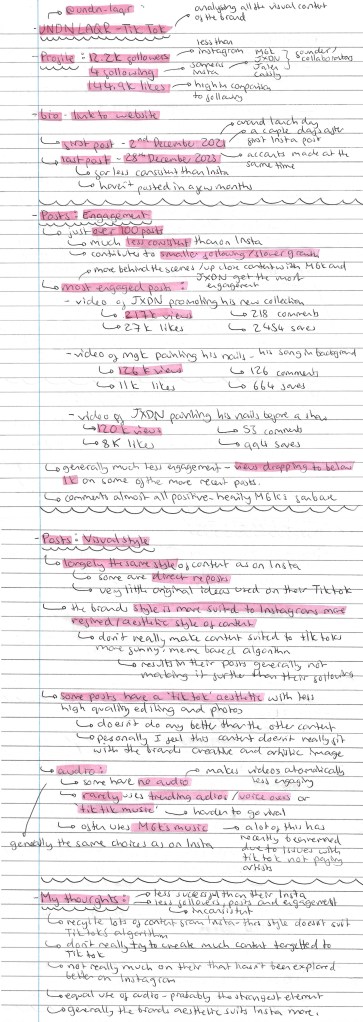 @undn.laqr
analysing all the visual content of the brand
UNDN LAQR - Tik Tok
less than instagram
- Profile: 12.2K followers
MGK
JXDN
Jaden
Cassity
founder/collaborators
4 following
same as insta
144.9K likes - high in comparison to following
- bio - link to website
around launch day
first post - 2nd December 2021
a couple days after first Insta post
last post - 28th December 2023
accounts made at the same time
far less consistent than Insta
haven't posted in a few months
- Posts: Engagement
just over 100 posts
much less consistent than on Insta
contributes to smaller following/slower growth
more behind the scenes/up close content with MGK and JXDN get the most engagement
most engaged posts:
- video of JXDN promoting his new collection
217K views
218 comments
27K likes
2454 saves
- video of mgk painting his nails - his song in background
126K views
126 comments
11K likes
664 saves
- video of JXDN painting his nails before a show
120K views
53 comments
8K likes
494 saves
generally much less engagement - views dropping to below 1K on some of the more recent posts.
comments almost all positive - heavily MGK's fanbase
- Posts: Visual style
largely the same style of content as on Insta
some are direct reposts
very little original ideas used on their Tiktok
the brands style is more suited to Instagrams more refined/aesthetic style of content
don't really make content suited to tiktoks more funny/meme based algorithm
results in their posts generally not making it further than their following
some posts have a 'tik tok' aesthetic with less high quality editing and photos
doesn't do any better than the other content
personally I feel this content doesn't really fit with the brands creative and artistic image
audio:
makes videos automatically less engaging
some have no audio
rarely uses trending audios/voice overs or 'tik tik music'
harder to go viral
often uses MGKs music
a lot of this has recently been removed due to issues with tik tok not paying artists
generally the same choices as on Insta
- My thoughts:
less sucessful than their Insta
less followers, posts and engagement
inconsistent
recycle lots of content from Insta - this style doesn't suit Tiktok's algorithm
don't really try to create much content targetted to Tik tok
not really much on their that hasn't been explored better on Instagram
equal use of audio - probably the strongest element
generally the brands aesthetic suits Insta more.